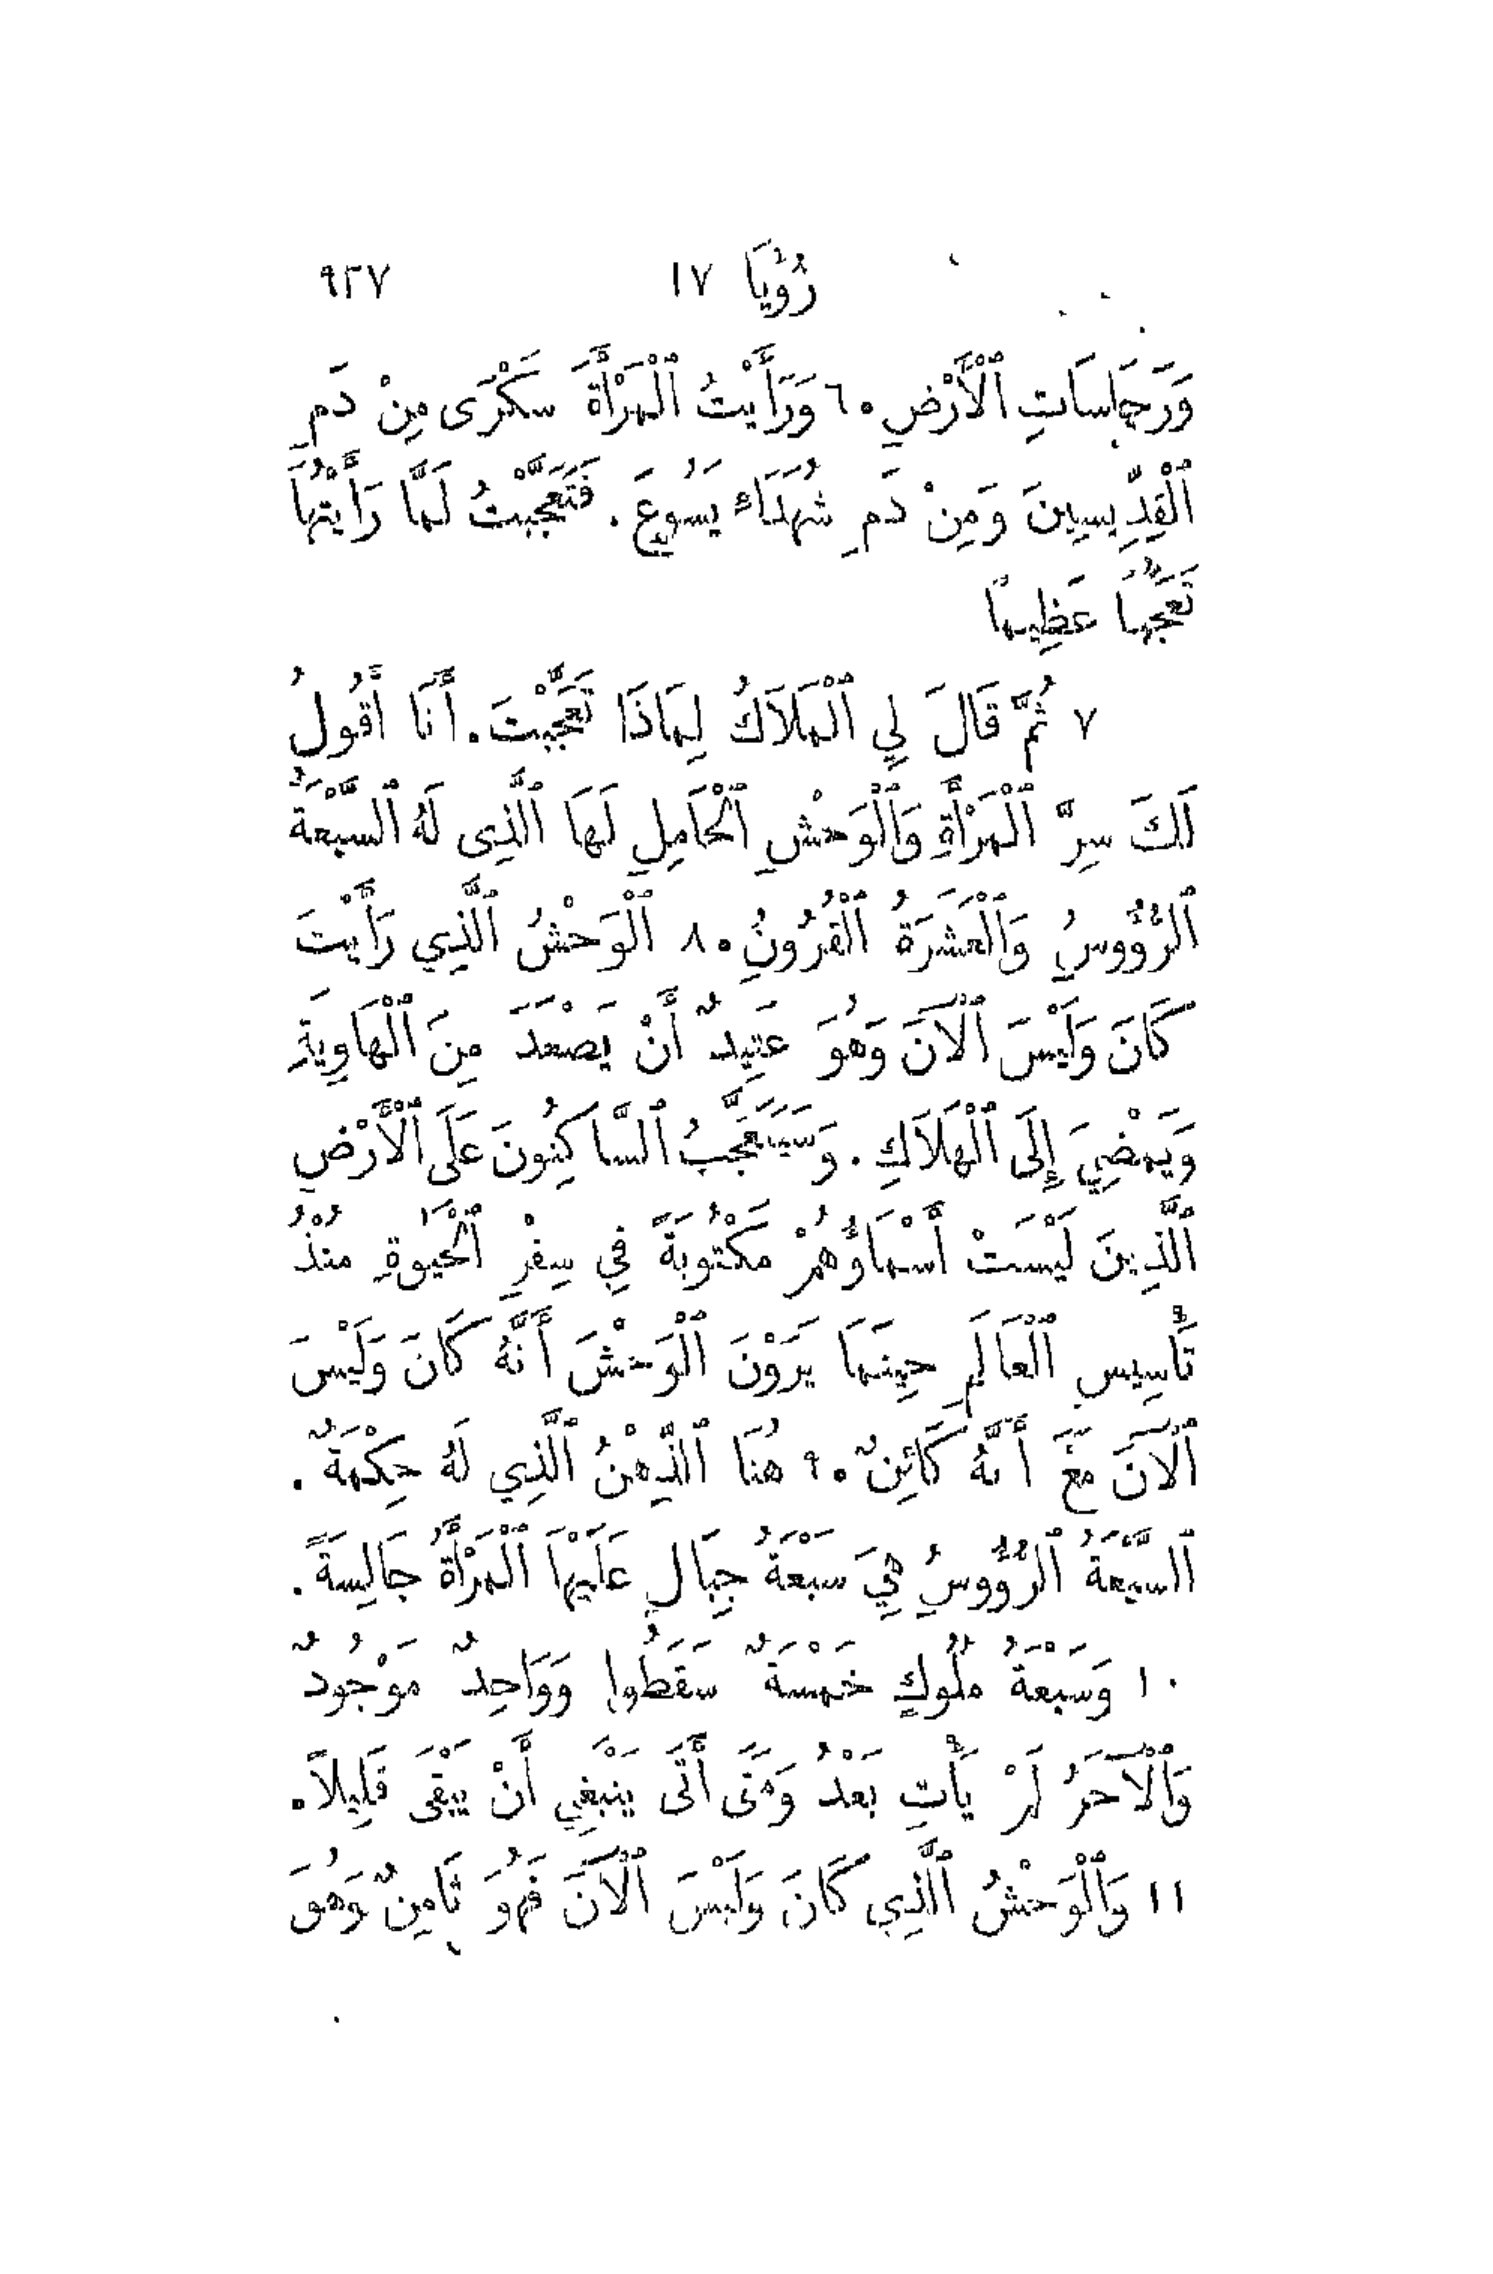 رُؤْيَا ١٧ ٩٢٧
وَرَجَاسَاتِ ٱلْأَرْضِ ٠ ٦ وَرَأَيْتُ ٱلْمَرْأَةَ سَكْرَى مِنْ دَمِ
ٱلْقِدِّيسِينَ وَمِنْ دَمِ شُهَدَاءِ يَسُوعَ . فَتَعَجَّبْتُ لَمَّا رَأَيْتُهَا
تَعَجُّبًا عَظِيمًا
٧ ثُمَّ قَالَ لِي ٱلْمَلَاكُ لِمَاذَا تَعَجَّبْتَ . أَنَا أَقُولُ
لَكَ سِرَّ ٱلْمَرْأَةِ وَٱلْوَحْشِ ٱلْحَامِلِ لَهَا ٱلَّذِى لَهُ ٱلسَّبْعَةُ
ٱلرُّؤُوسُ وَٱلْعَشَرَةُ ٱلْقُرُونُ ٠ ٨ ٱلْوَحْشُ ٱلَّذِي رَأَيْتَ
كَانَ وَلَيْسَ ٱلْآنَ وَهُوَ عَتِيدٌ أَنْ يَصْعَدَ مِنَ ٱلْهَاوِيَةِ
وَيَمْضِيَ إِلَى ٱلْهَلَاكِ . وَسَيَتَعَجَّبُ ٱلسَّاكِنُونَ عَلَى ٱلْأَرْضِ
ٱلَّذِينَ لَيْسَتْ أَسْمَاؤُهُمْ مَكْتُوبَةً فِي سِفْرِ ٱلْحَيٰوةِ مُنْذُ
تَأْسِيسِ ٱلْعَالَمِ حِينَمَا يَرَوْنَ ٱلْوَحْشَ أَنَّهُ كَانَ وَلَيْسَ
ٱلْآنَ مَعَ أَنَّهُ كَائِنٌ ٠ ٩ هُنَا ٱلذِّهْنُ ٱلَّذِي لَهُ حِكْمَةٌ .
ٱلسَّبْعَةُ ٱلرُّؤُوسُ هِيَ سَبْعَةُ جِبَالٍ عَلَيْهَا ٱلْمَرْأَةُ جَالِسَةً .
١٠ وَسَبْعَةُ مُلُوكٍ خَمْسَةٌ سَقَطُوا وَوَاحِدٌ مَوْجُودٌ
وَٱلْآخَرُ لَمْ يَأْتِ بَعْدُ وَمَتَى أَتَى يَنْبَغِي أَنْ يَبْقَى قَلِيلًا ٠
١١ وَٱلْوَحْشُ ٱلَّذِي كَانَ وَلَيْسَ ٱلْآنَ فَهُوَ ثَامِنٌ وَهُوَ